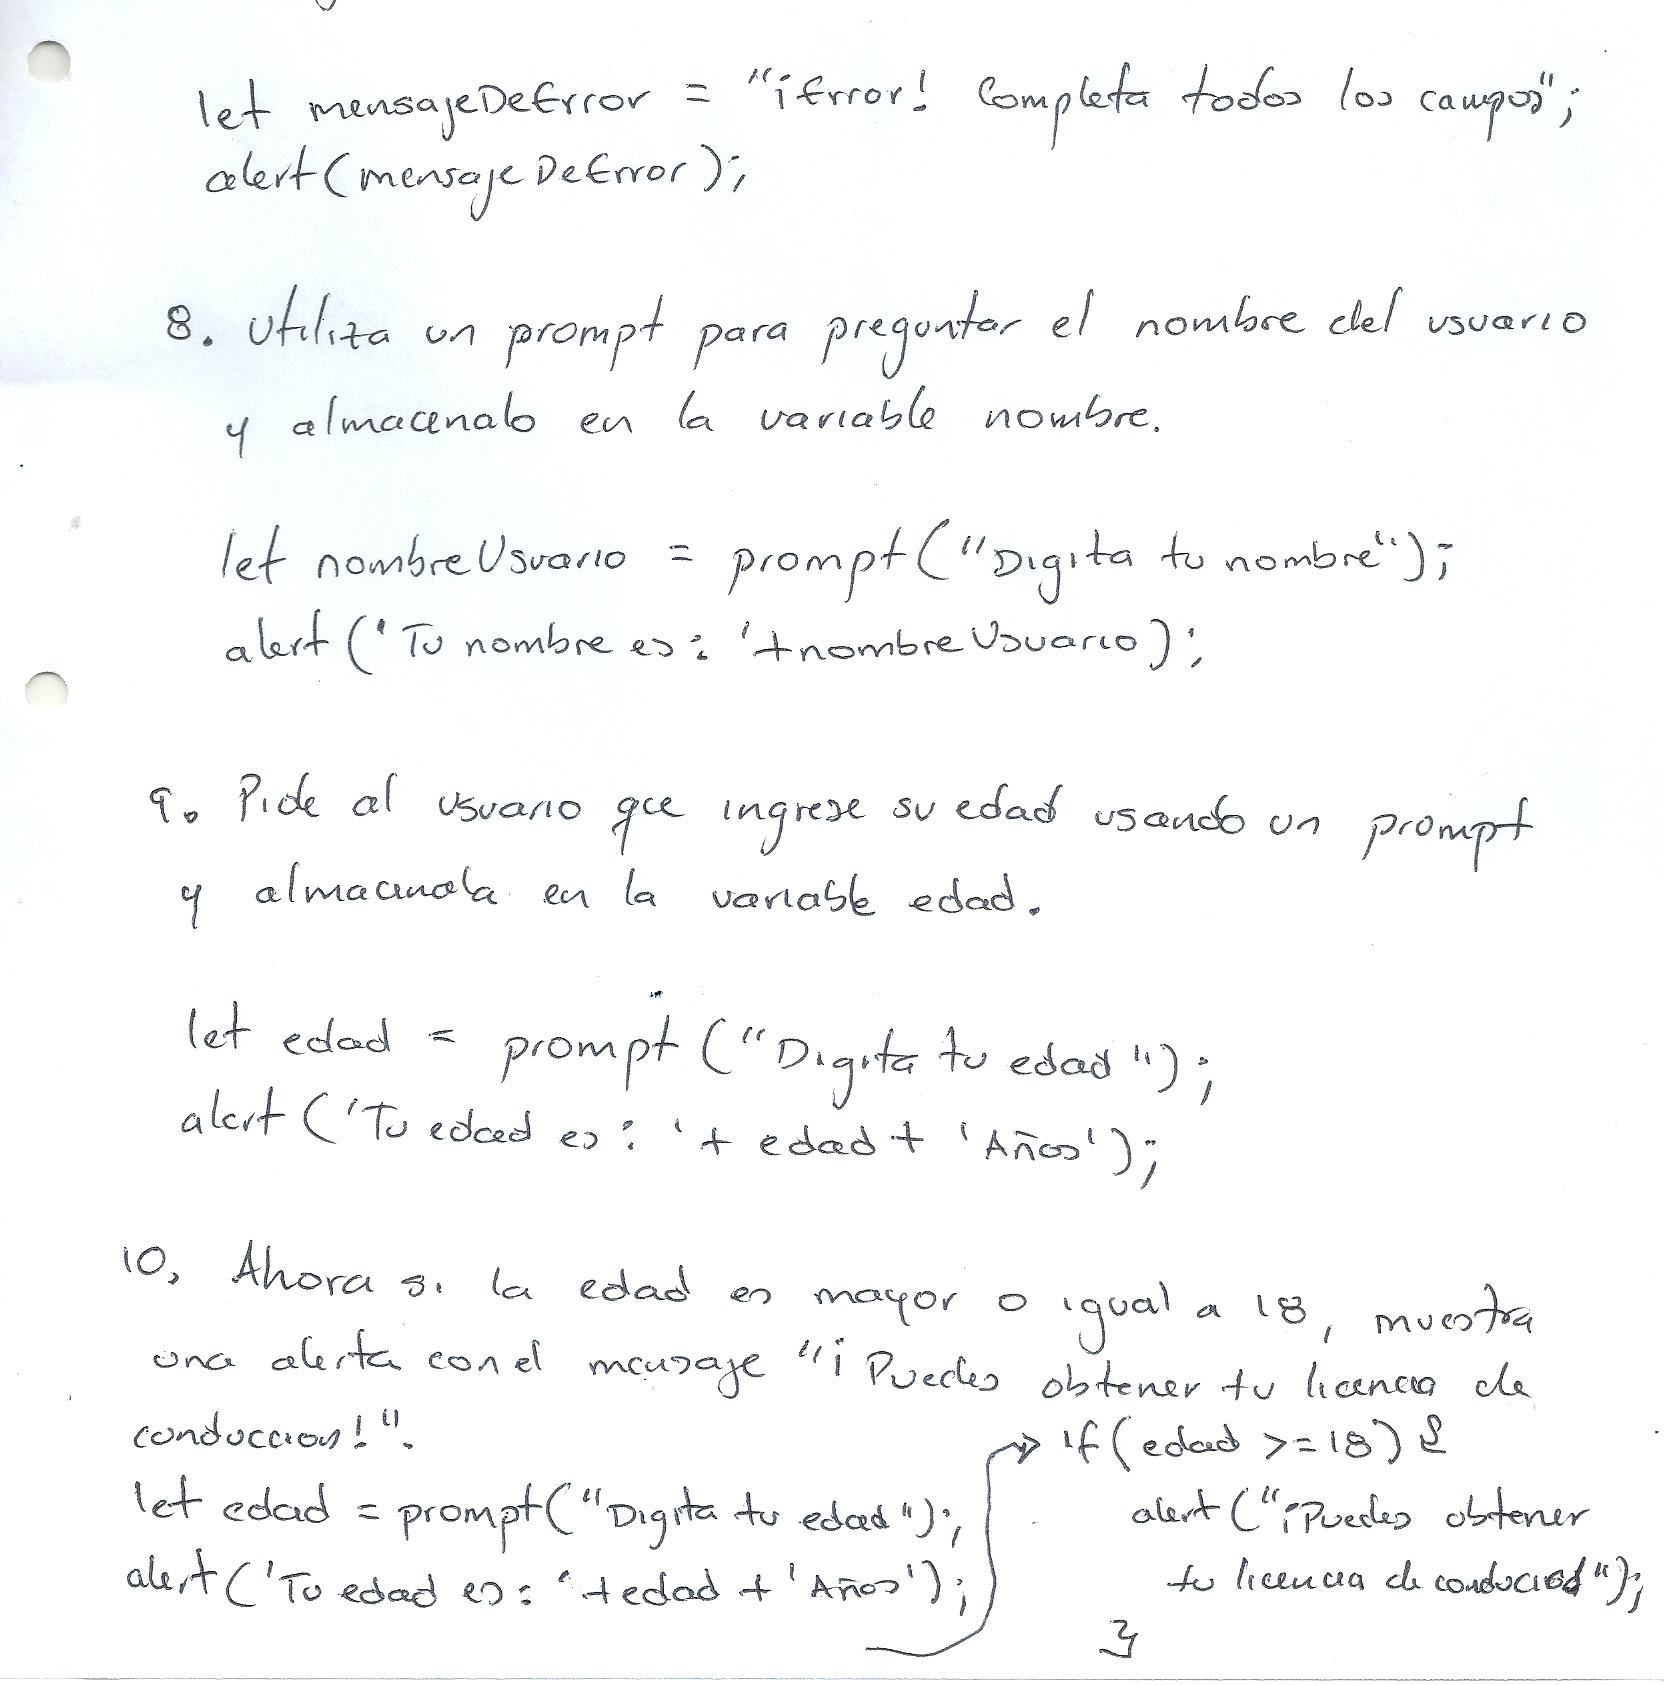 let mensajeDeError = "¡Error! Completa todos los campos";
alert(mensajeDeError);
8. Utiliza un prompt para preguntar el nombre del usuario
y almacenalo en la variable nombre.
let nombreUsuario = prompt("Digita tu nombre");
alert('Tu nombre es: '+nombreUsuario);
9. Pide al usuario que ingrese su edad usando un prompt
y almacenala en la variable edad.
let edad = prompt ("Digita tu edad");
alert ('Tu edad es: '+ edad + 'Años');
10. Ahora si la edad es mayor o igual a 18, muestra
una alerta con el mensaje "¡Puedes obtener tu licencia de
conduccion!".
let edad = prompt("Digita tu edad");
alert('Tu edad es: '+edad + 'Años');
if(edad >=18) {
alert("¡Puedes obtener
tu licencia de conduccion");
}